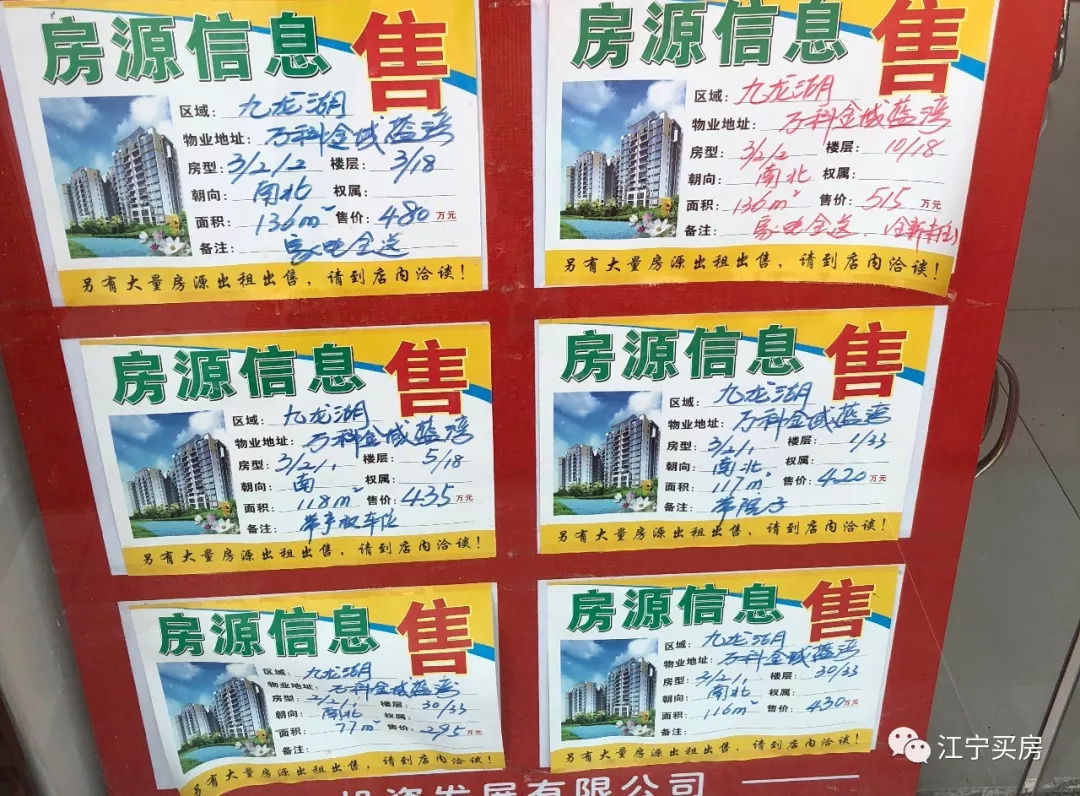 房源信息 售
区域：九龙湖
物业地址：万科金域蓝湾
房型：3/2/2 楼层：3/18
朝向：南北 权属：
面积：136m² 售价：480万元
备注：家电全送
另有大量房源出租出售，请到店内洽谈！
房源信息 售
区域：九龙湖
物业地址：万科金域蓝湾
房型：3/2/2 楼层：10/18
朝向：南北 权属：
面积：136m² 售价：515万元
备注：家电全送
另有大量房源出租出售，请到店内洽谈！
房源信息 售
区域：九龙湖
物业地址：万科金域蓝湾
房型：3/2/1 楼层：5/18
朝向：南 权属：
面积：118m² 售价：435万元
备注：带产权车位
另有大量房源出租出售，请到店内洽谈！
房源信息 售
区域：九龙湖
物业地址：万科金域蓝湾
房型：3/2/1 楼层：1/33
朝向：南北 权属：
面积：117m² 售价：420万元
备注：带院子
另有大量房源出租出售，请到店内洽谈！
房源信息 售
区域：九龙湖
物业地址：万科金域蓝湾
房型：2/2/1 楼层：30/33
朝向：南北 权属：
面积：77m² 售价：295万元
备注：
另有大量房源出租出售，请到店内洽谈！
房源信息 售
区域：九龙湖
物业地址：万科金域蓝湾
房型：3/2/1 楼层：30/33
朝向：南北 权属：
面积：116m² 售价：430万元
备注：
另有大量房源出租出售，请到店内洽谈！
投资发展有限公司
江宁买房